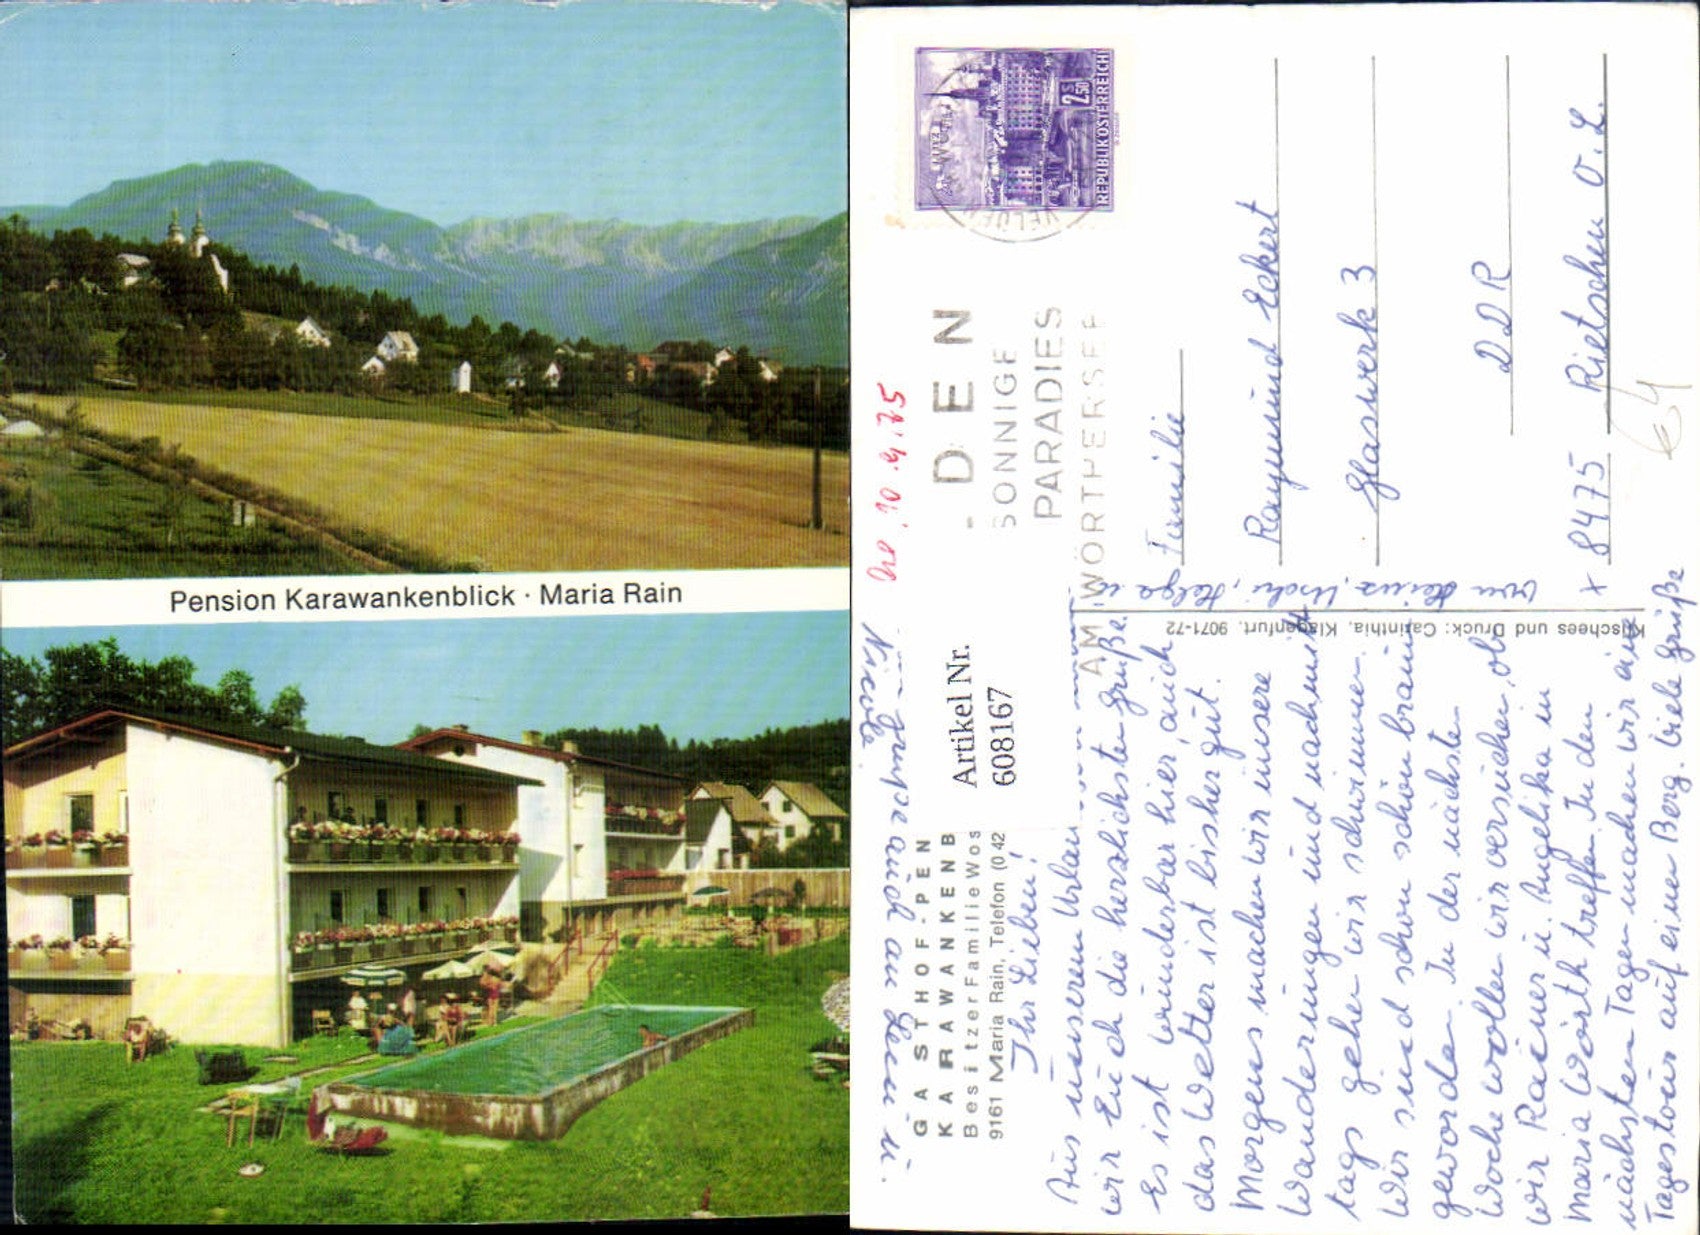 Pension Karawankenblick · Maria Rain
REPUBLIK ÖSTERREICH
2.50
S
VELDEN
DEN
SONNIGE
PARADIES
AM WÖRTHERSEE
Artikel Nr.
608167
GASTHOF-PEN
KARAWANKENB
Besitzer Familie Wos
9161 Maria Rain, Telefon (0 42
Klischees und Druck: Carinthia, Klagenfurt. 9071-72
Familie
Raymund Eckert
Glaswerk 3
DDR
x 8475 Rietschen O.L.
Ihr Lieben!
Aus unserem Urlau
wir Euch die herzlichsten Grüße.
Es ist wunderbar hier, auch
das Wetter ist bisher gut.
Morgens machen wir unsere
Wanderungen und nachmit
tags gehen wir schwimmen.
Wir sind schon schön braun
geworden. In der nächsten
Woche wollen wir versuchen, ob
wir Rainer u. Angelika in
Maria Wörth treffen. In den
nächsten Tagen machen wir eine
Tagestour auf einen Berg. Viele Grüße
von Heinz, Uschi, Helga u.
Nicole
auch an